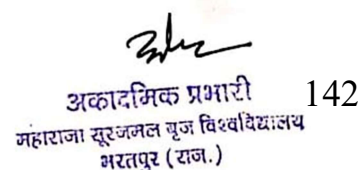 अकादमिक प्रभारी
142
महाराजा सूरजमल बृज विश्वविद्यालय
भरतपुर (राज.)